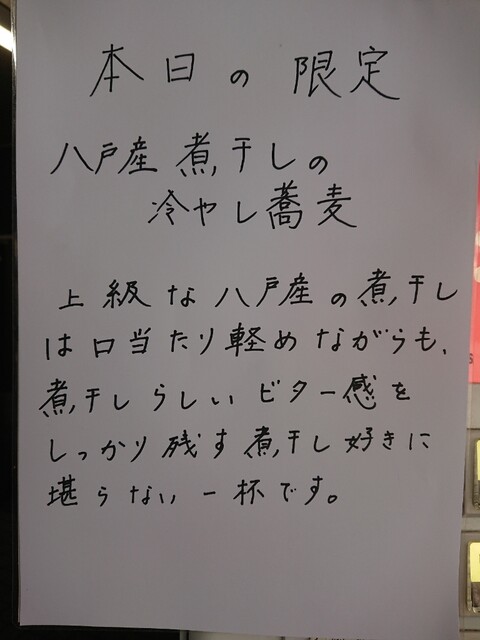 本日の限定
八戸産煮干しの
冷やし蕎麦
上級な八戸産の煮干し
は口当たり軽めながらも、
煮干しらしいビター感を
しっかり残す煮干し好きに
堪らない一杯です。